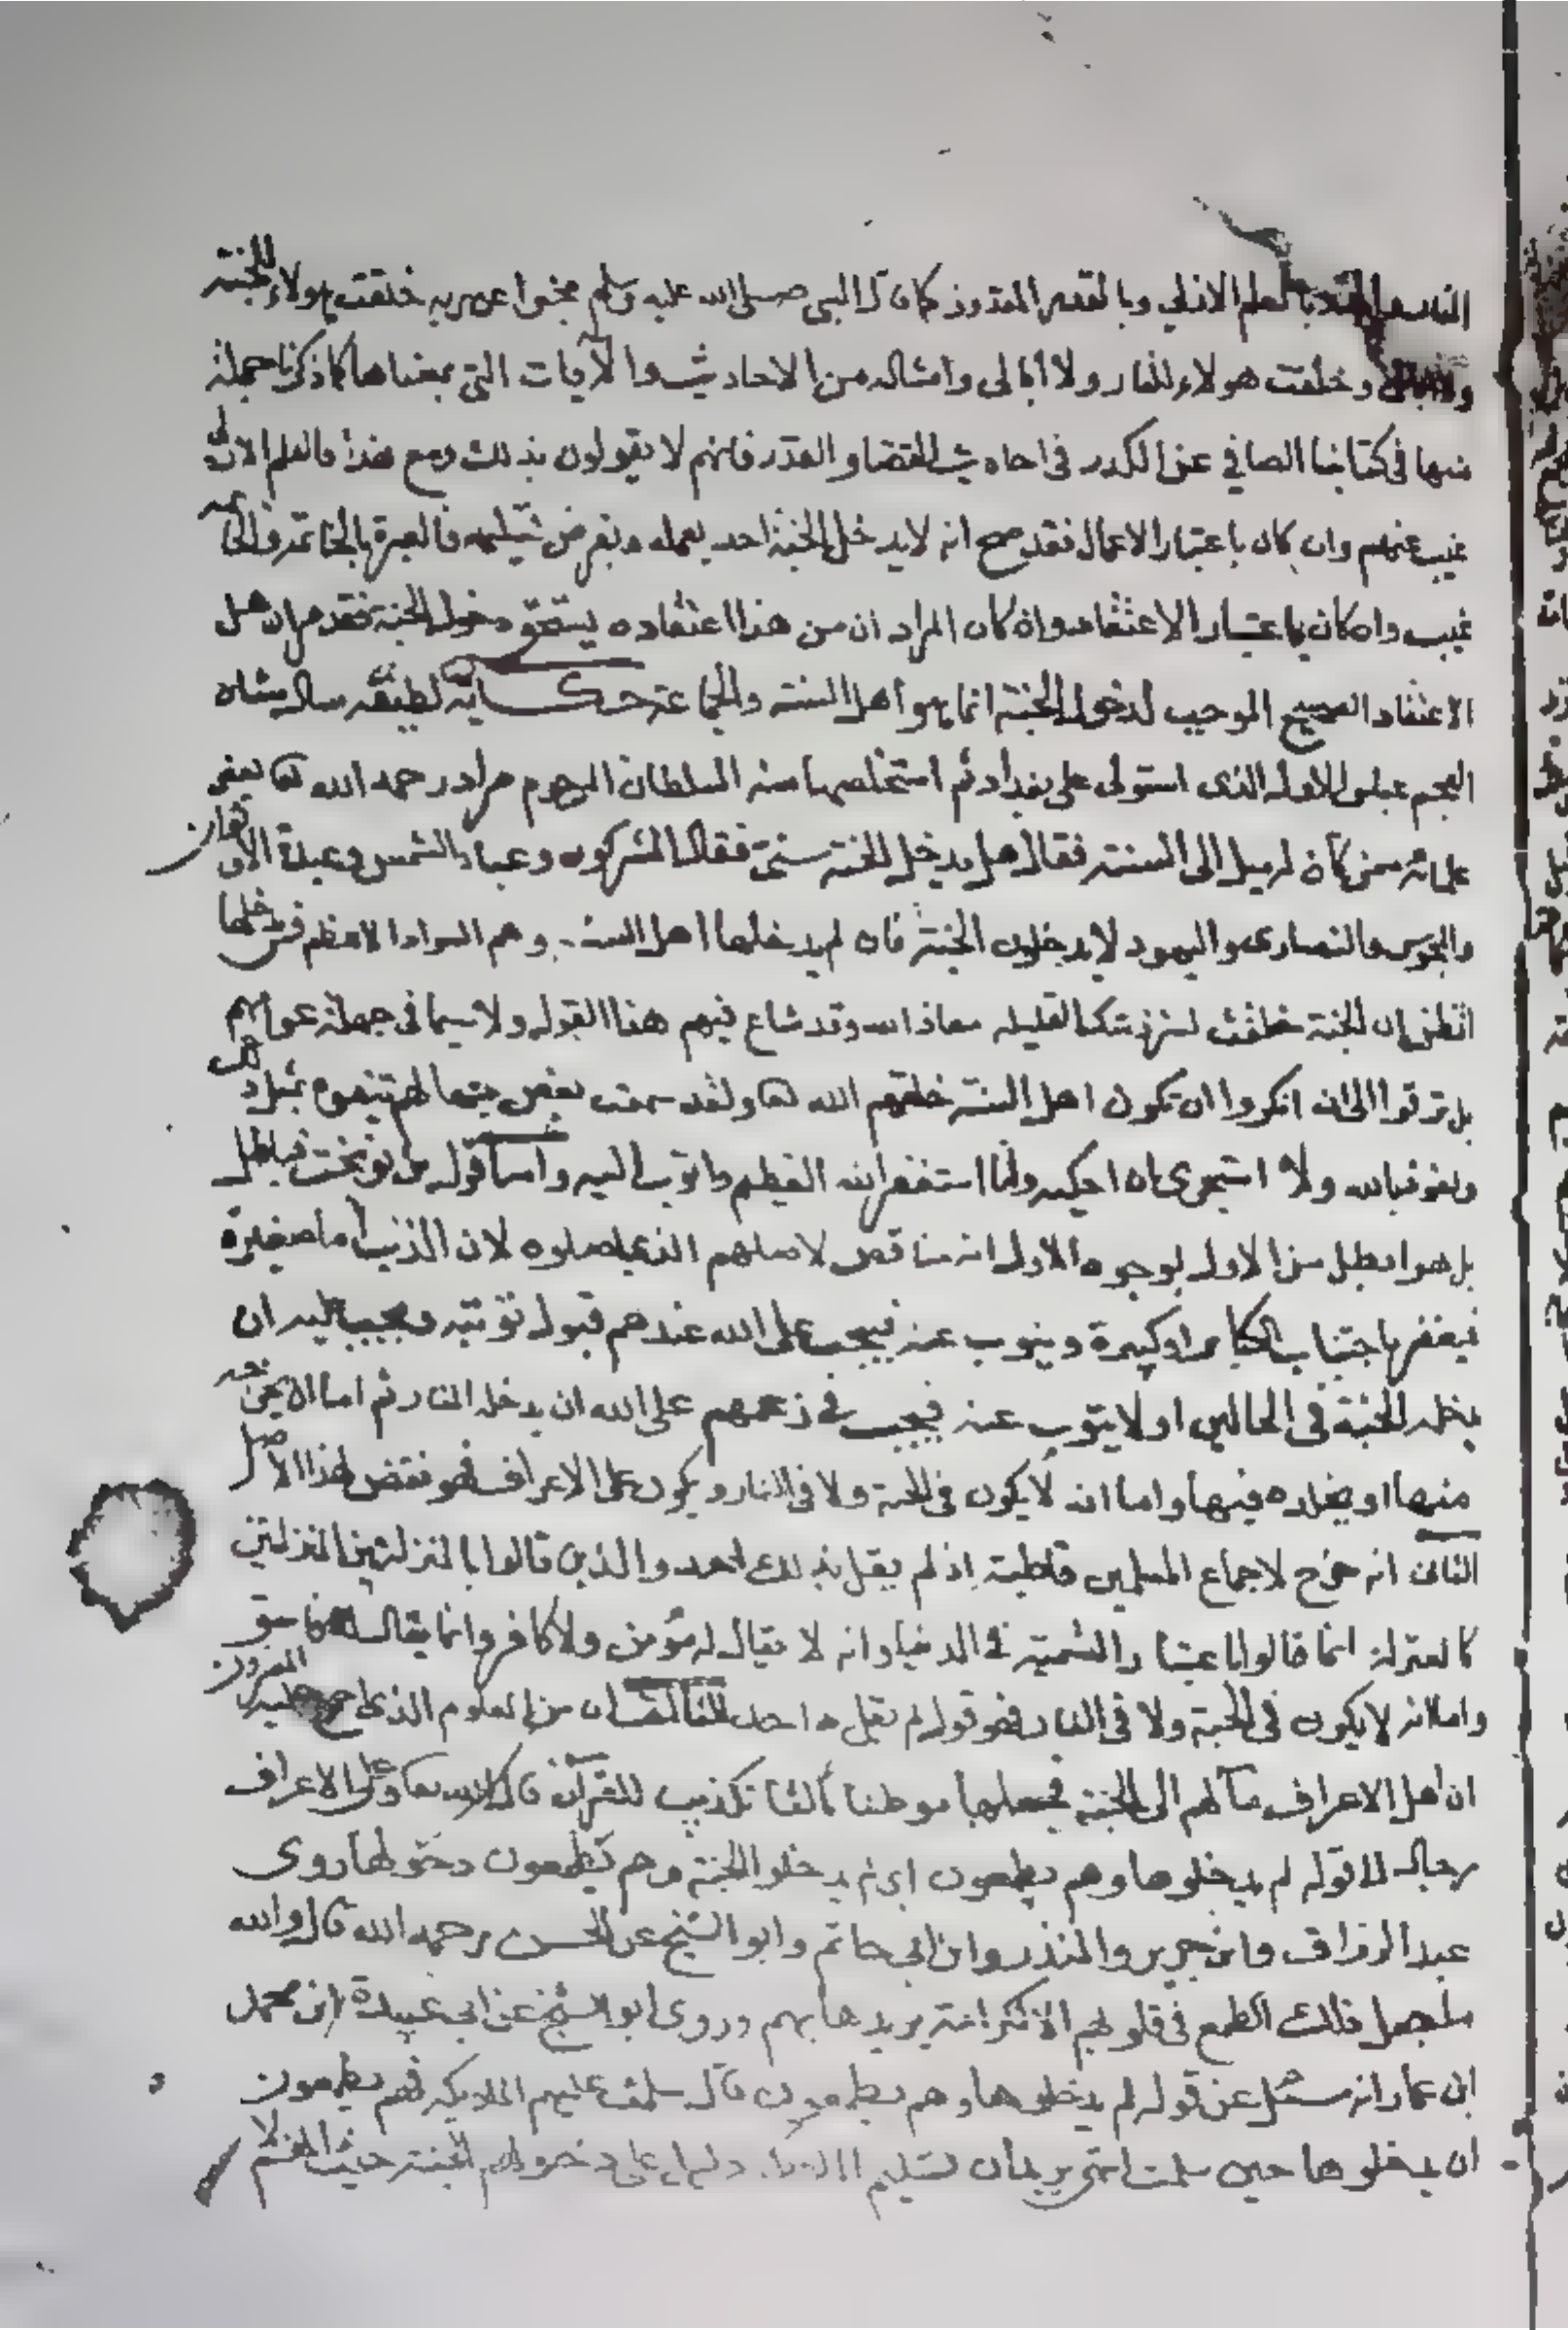 بالعلم الازلي وبالتقدير كما قال النبي صلى الله عليه وسلم مخبرا عن ربه خلقت هولاء للجنة
ولا ابالي وخلقت هولاء للنار ولا ابالي وامثاله من الاحاديث والآيات التي بمعناها كما ذكرنا جملة
منها في كتابنا الصافي عن الكدر في احاديث القضا والقدر فانهم لا يقولون بذلك ومع هذا فالعلم الازلي
غيب عنهم وان كان باعتبار الاعمال فقد صح انه لا يدخل الجنة احد بعمله وبفرض تسليمه فالعبرة بالخاتمة والخاتمة
غيب وان كان باعتبار الاعتقاد وان كان المراد ان من هذا اعتقاده يستحق دخول الجنة فقد مر ان اهل
الاعتقاد الصحيح الموجب لدخول الجنة انما هو اهل السنة والجماعة حكاية لطيفة سال شاه
العجم عباس الاول الذي استولى على بغداد ثم استخلصها منه السلطان المرحوم مراد رحمه الله تعا بعض
علمائه ممن كان له ميل الى السنة فقال هل يدخل الجنة سني فقال المشركون وعباد الشمس وعبدة الاوثان
والمجوس والنصارى واليهود لا يدخلون الجنة فان لم يدخلها اهل السنة وهم السواد الاعظم فمن يدخلها
اتظن ان الجنة خلقت لشرذمتك القليله معاذ الله وقد شاع فيهم هذا القول ولا سيما في جملة عوامهم
بل ترقوا الى ان انكروا ان يكون اهل السنة خلقهم الله تعا ولقد سمعت بعض
ونعوذ بالله ولا استجرى ان احكيه وانا استغفر الله العظيم واتوب اليه واما قول بن نوبخت فباطل
بل هو ابطل من الاول لوجوه الاول انه مناقض لاصلهم الذي اصلوه لان الذنب اما صغيرة
فيغفر باجتناب الكبائر او كبيرة ويتوب عنه فيجب على الله عندهم قبول توبته ويجب عليه ان
يدخله الجنة في الحالين او لا يتوب عنه فيجب في زعمهم على الله ان يدخله النار ثم اما ان يخرجه
منها او يخلده فيها واما انه لا يكون في الجنة ولا في النار ويكون على الاعراف فهو نقض لهذا الاصل
الثاني انه خرق لاجماع المسلمين قاطبة اذ لم يقل بذلك احد والذين قالوا بالمنزلة بين المنزلتين
كالمعتزلة انما قالوا باعتبار التسمية في الدنيا وانه لا يقال له مؤمن ولا كافر وانما يقال له فاسق
واما انه لا يكون في الجنة ولا في النار فهو قول لم يقل به احد الثالث ان من المعلوم الذي اجمع عليه المفسرون
ان اهل الاعراف مآلهم الى الجنة فجعلها موطنا ثالثا تكذيب للقرآن قال الله تعا وعلى الاعراف
رجال الى قوله لم يدخلوها وهم يطمعون اي لم يدخلوا الجنة وهم يطمعون دخولها روى
عبد الرزاق وابن جرير والمنذر وابن ابي حاتم وابو الشيخ عن الحسن رحمه الله قال والله
ما جعل ذلك الطمع في قلوبهم الا لكرامة يريدها بهم وروى ابو الشيخ عن ابي عبيدة ابن محمد
ابن عمار انه سئل عن قوله لم يدخلوها وهم يطمعون قال سلمت عليهم الملايكه فهم يطمعون
ان يدخلوها حين سلمت انتهى يريد ان تسليم الملائكة دليل على دخولهم الجنة حيث انهم لا